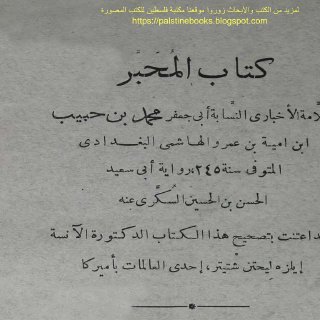 لمزيد من الكتب والأبحاث زوروا موقعنا مكتبة فلسطين للكتب المصورة
https://palstinebooks.blogspot.com
كتاب المُحَبَّر
لّامة الأخبارى النسّابة أبى جعفر محمد بن حبيب
ابن امية بن عمرو الهاشمى البغدادى
المتوفى سنة ٢٤٥، رواية أبى سعيد
الحسن بن الحسين السُكَّرى عنه
داعتنت بتصحيح هذا الكتاب الدكتورة الآنسة
إيلزه ليحتن شتيتر، إحدى العالمات بأميركا